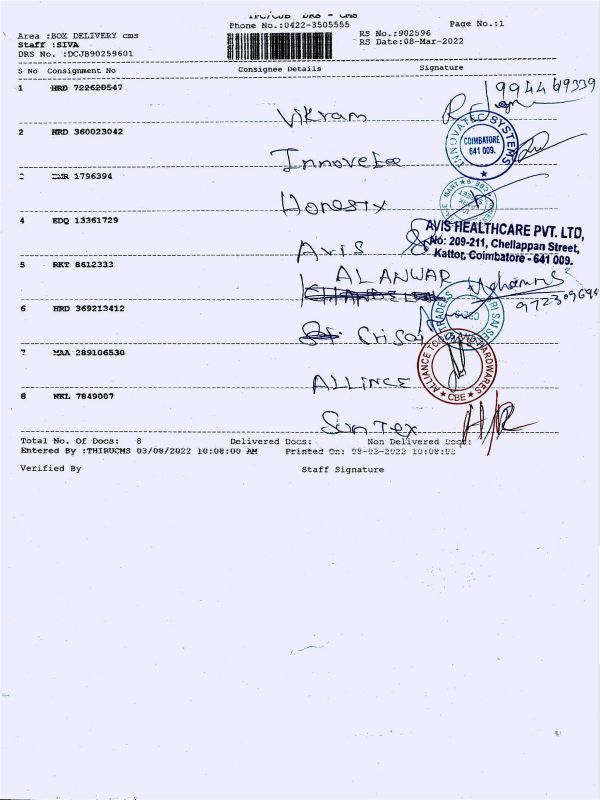 TPC/CJB DRS - CMS
Phone No.:0422-3505555
Page No.:1
Area :BOX DELIVERY cms
RS No.:902596
Staff :SIVA
RS Date:08-Mar-2022
DRS No. :DCJB90259601
S No Consignment No Consignee Details Signature
1 HRD 722620547 Vikram
2 HRD 360023042
INNOVATEC SYSTEMS
COIMBATORE
641 009.
3 EMR 1796394 Honesty
4 EDQ 13361729 Avis
AVIS HEALTHCARE PVT. LTD,
No: 209-211, Chellappan Street,
Kattor, Coimbatore - 641 009.
5 RKT 8612333 AL ANWAR
6 HRD 369213412
7 MAA 289106530 ALLINCE
ALLIANCE TOOLS AND HARDWARES
CBE
8 NKL 7849007 Sun Tex
Total No. Of Docs: 8 Delivered Docs: Non Delivered Docs:
Entered By :THIRUCMS 03/08/2022 10:08:00 AM Printed On: 08-03-2022 10:08:02
Verified By Staff Signature